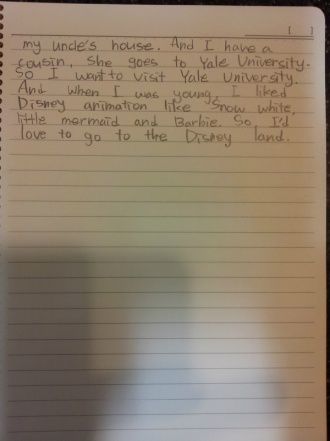 my uncle's house. And I have a
cousin, she goes to Yale University.
So I want to visit Yale University.
And when I was young, I liked
Disney animation like Snow white,
little mermaid and Barbie. So, I'd
love to go to the Disney land.